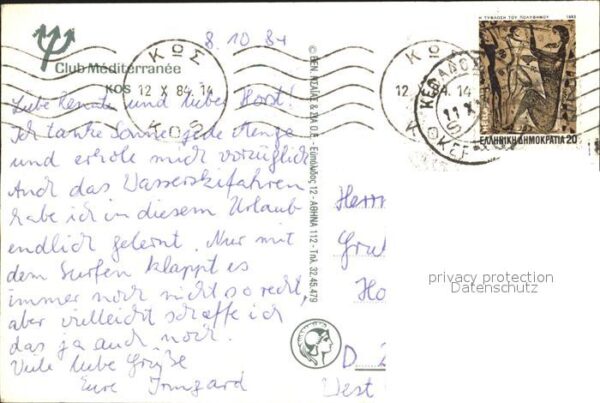 8.10.84
Club Méditerranée
KOS
ΚΩΣ
12 X 84.14
ΚΟΣ
ΚΩΣ
12 X 84.14
Η ΤΥΦΛΩΣΗ ΤΟΥ ΠΟΛΥΦΗΜΟΥ 1983
ΕΛΛΗΝΙΚΗ ΔΗΜΟΚΡΑΤΙΑ 20
Liebe Renate und lieber Horst!
Ich tanke Sonne jede Menge
und erhole mich vorzüglich
Auch das Wasserskifahren
habe ich in diesem Urlaub
endlich gelernt. Nur mit
dem Surfen klappt es
immer noch nicht so recht,
aber vielleicht schaffe ich
das ja auch noch.
Viele liebe Grüße
Eure Irmgard
ΑΘΗΝΑ 112 - Τηλ. 32.45.479
Herrn
D
West
privacy protection
Datenschutz